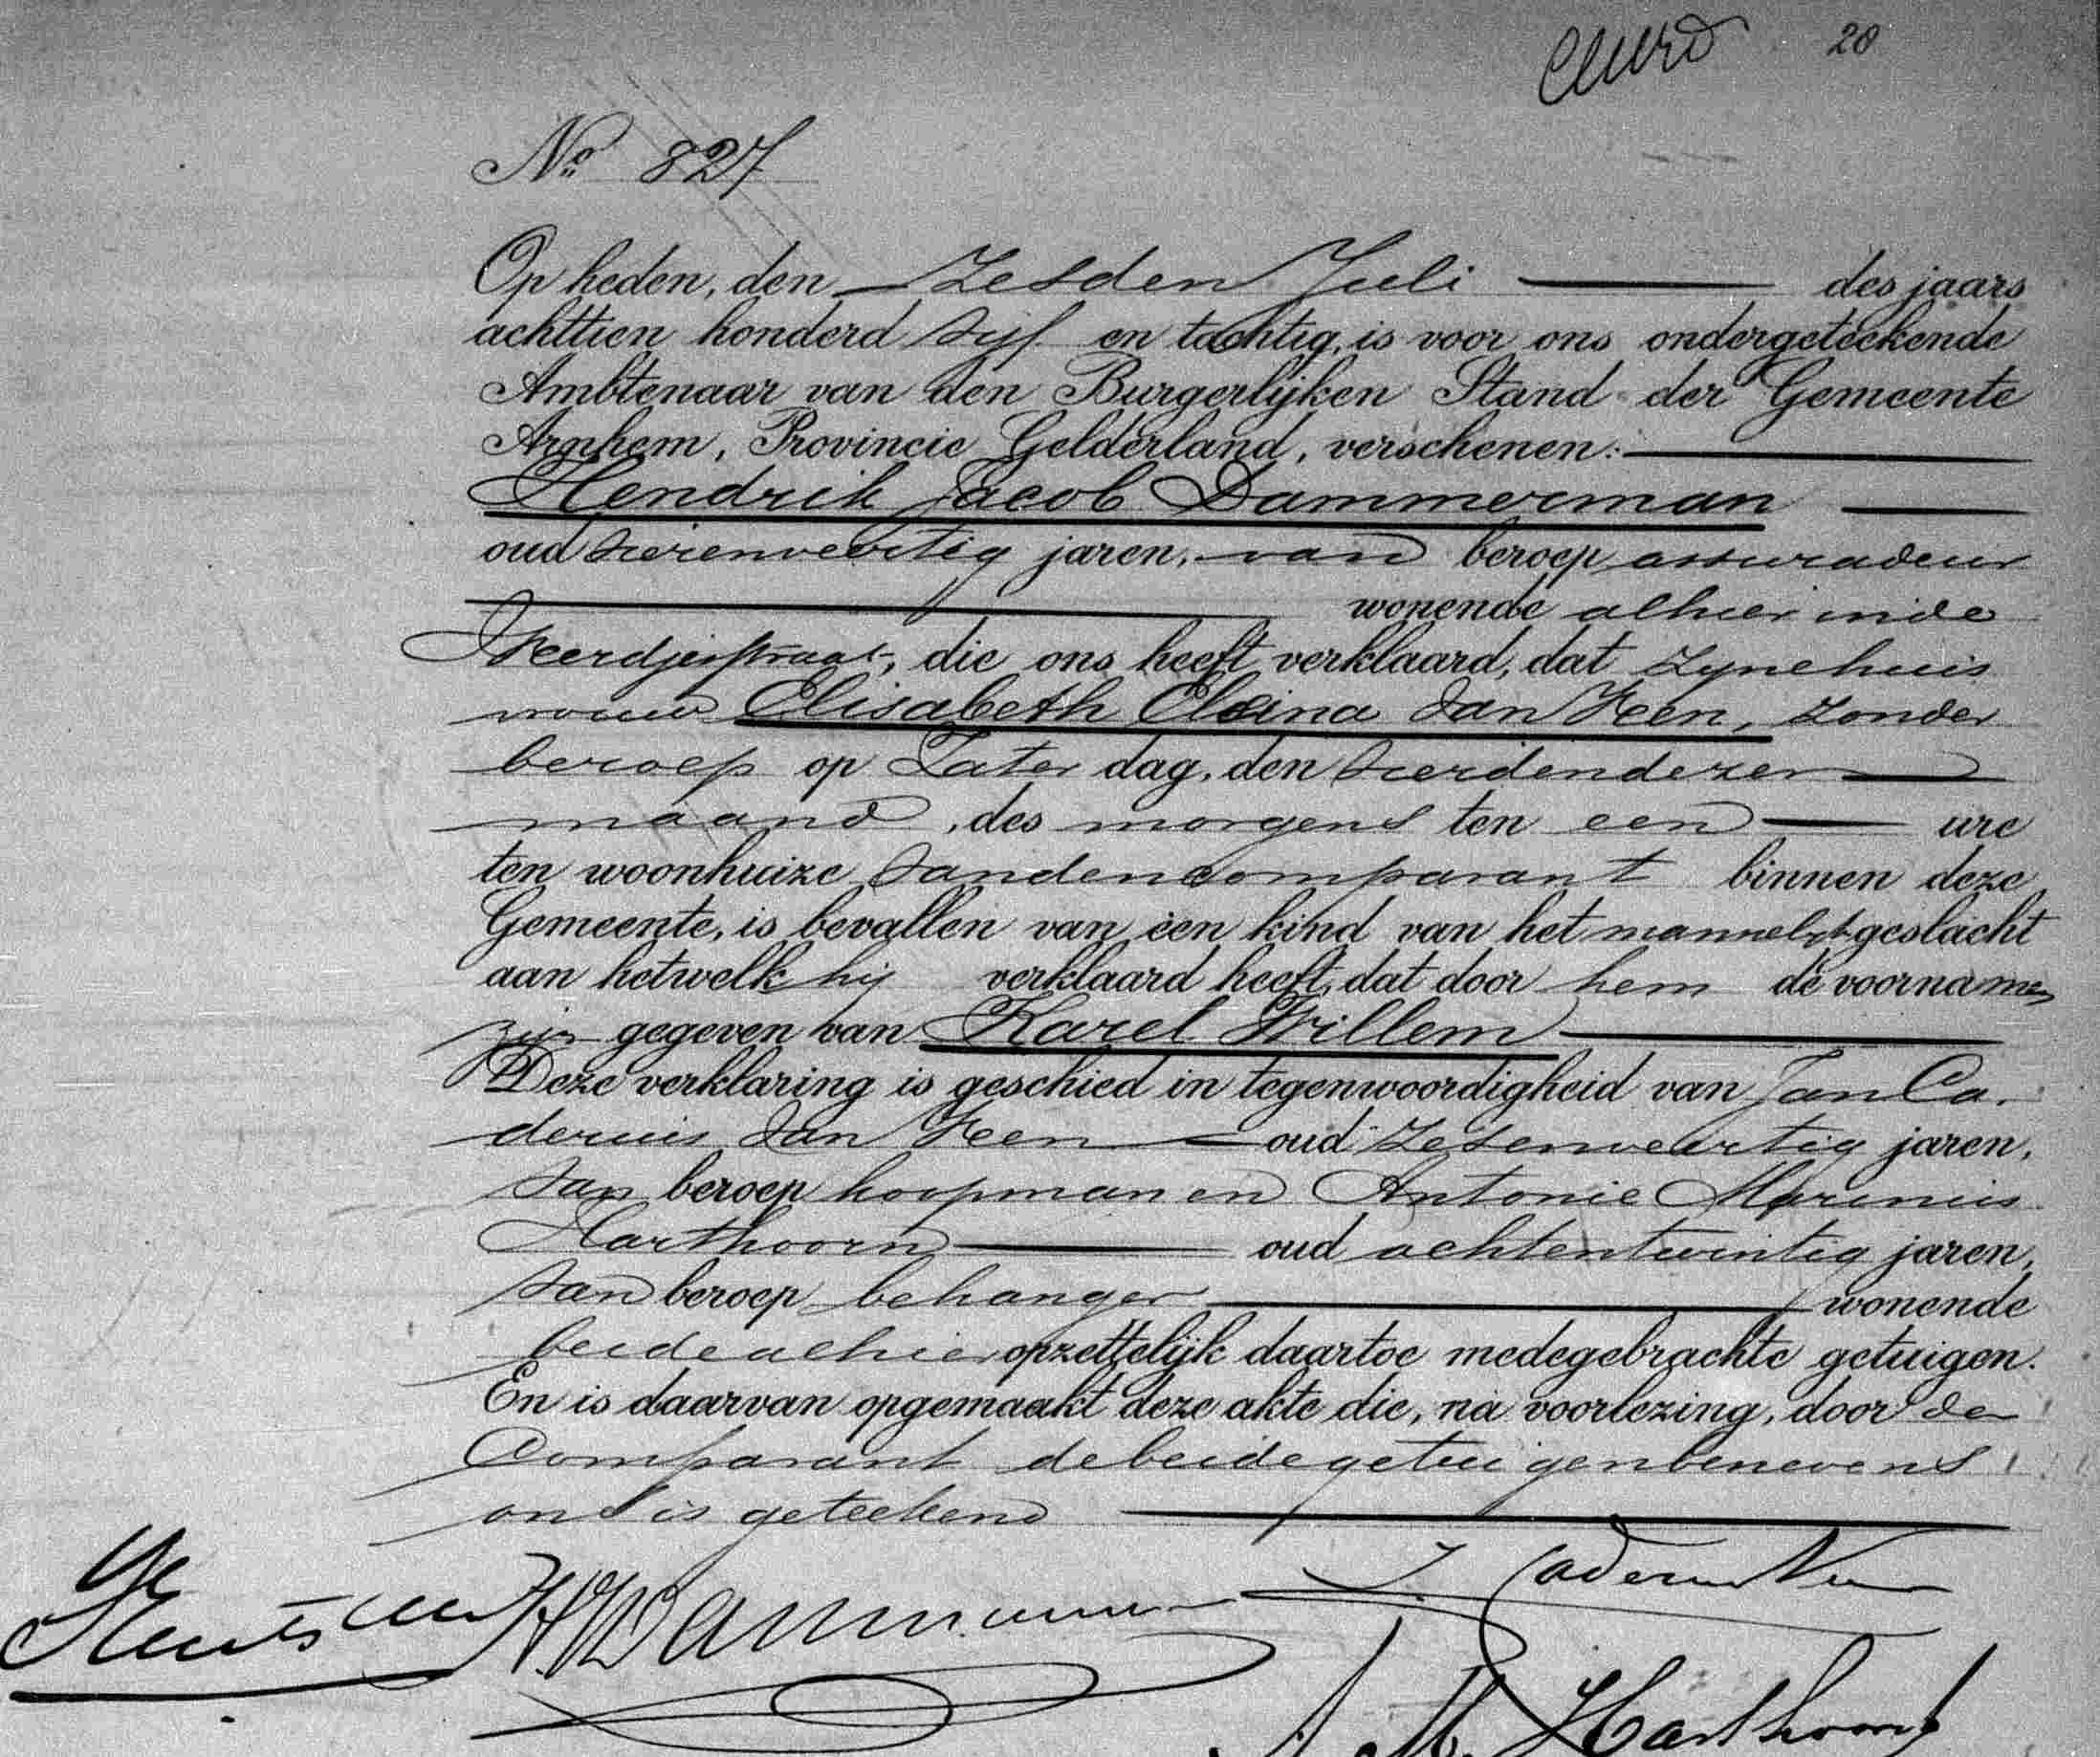 20
No 827
Op heden, den Zesden Juli des jaars
achttien honderd vijf en tachtig, is voor ons ondergeteekende
Ambtenaar van den Burgerlijken Stand der Gemeente
Arnhem, Provincie Gelderland, verschenen:
Hendrik Jacob Dammerman
oud vierenveertig jaren, van beroep assuradeur
wonende alhier in de
Weerdjesstraat, die ons heeft verklaard, dat zijne huis
vrouw Elisabeth Elsina van Veen, zonder
beroep op Zater dag, den vierden dezer
maand, des morgens ten een ure
ten woonhuize van den comparant binnen deze
Gemeente, is bevallen van een kind van het mannelijk geslacht
aan hetwelk hij verklaard heeft, dat door hem de voornamen
zijn gegeven van Karel Willem
Deze verklaring is geschied in tegenwoordigheid van Jan Ca-
derius van Veen oud zesenveertig jaren,
van beroep koopman en Antonie Marinus
Harthoorn oud achtentwintig jaren,
van beroep behanger wonende
beide alhier opzettelijk daartoe medegebrachte getuigen.
En is daarvan opgemaakt deze akte die, na voorlezing, door de
Comparant de beide getuigen benevens
ons is geteekend
J Caderius Veen
HJDammerman
A M. Harthoorn